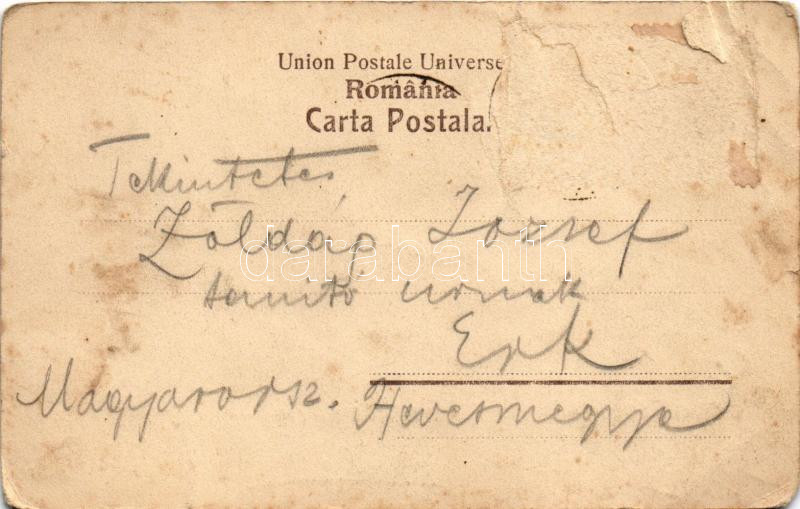 Union Postale Universe
România
Carta Postala.
Tekintetes
Zöldág József
tanitó urnak
Erk
Magyarorsz. Hevesmegye
darabanth